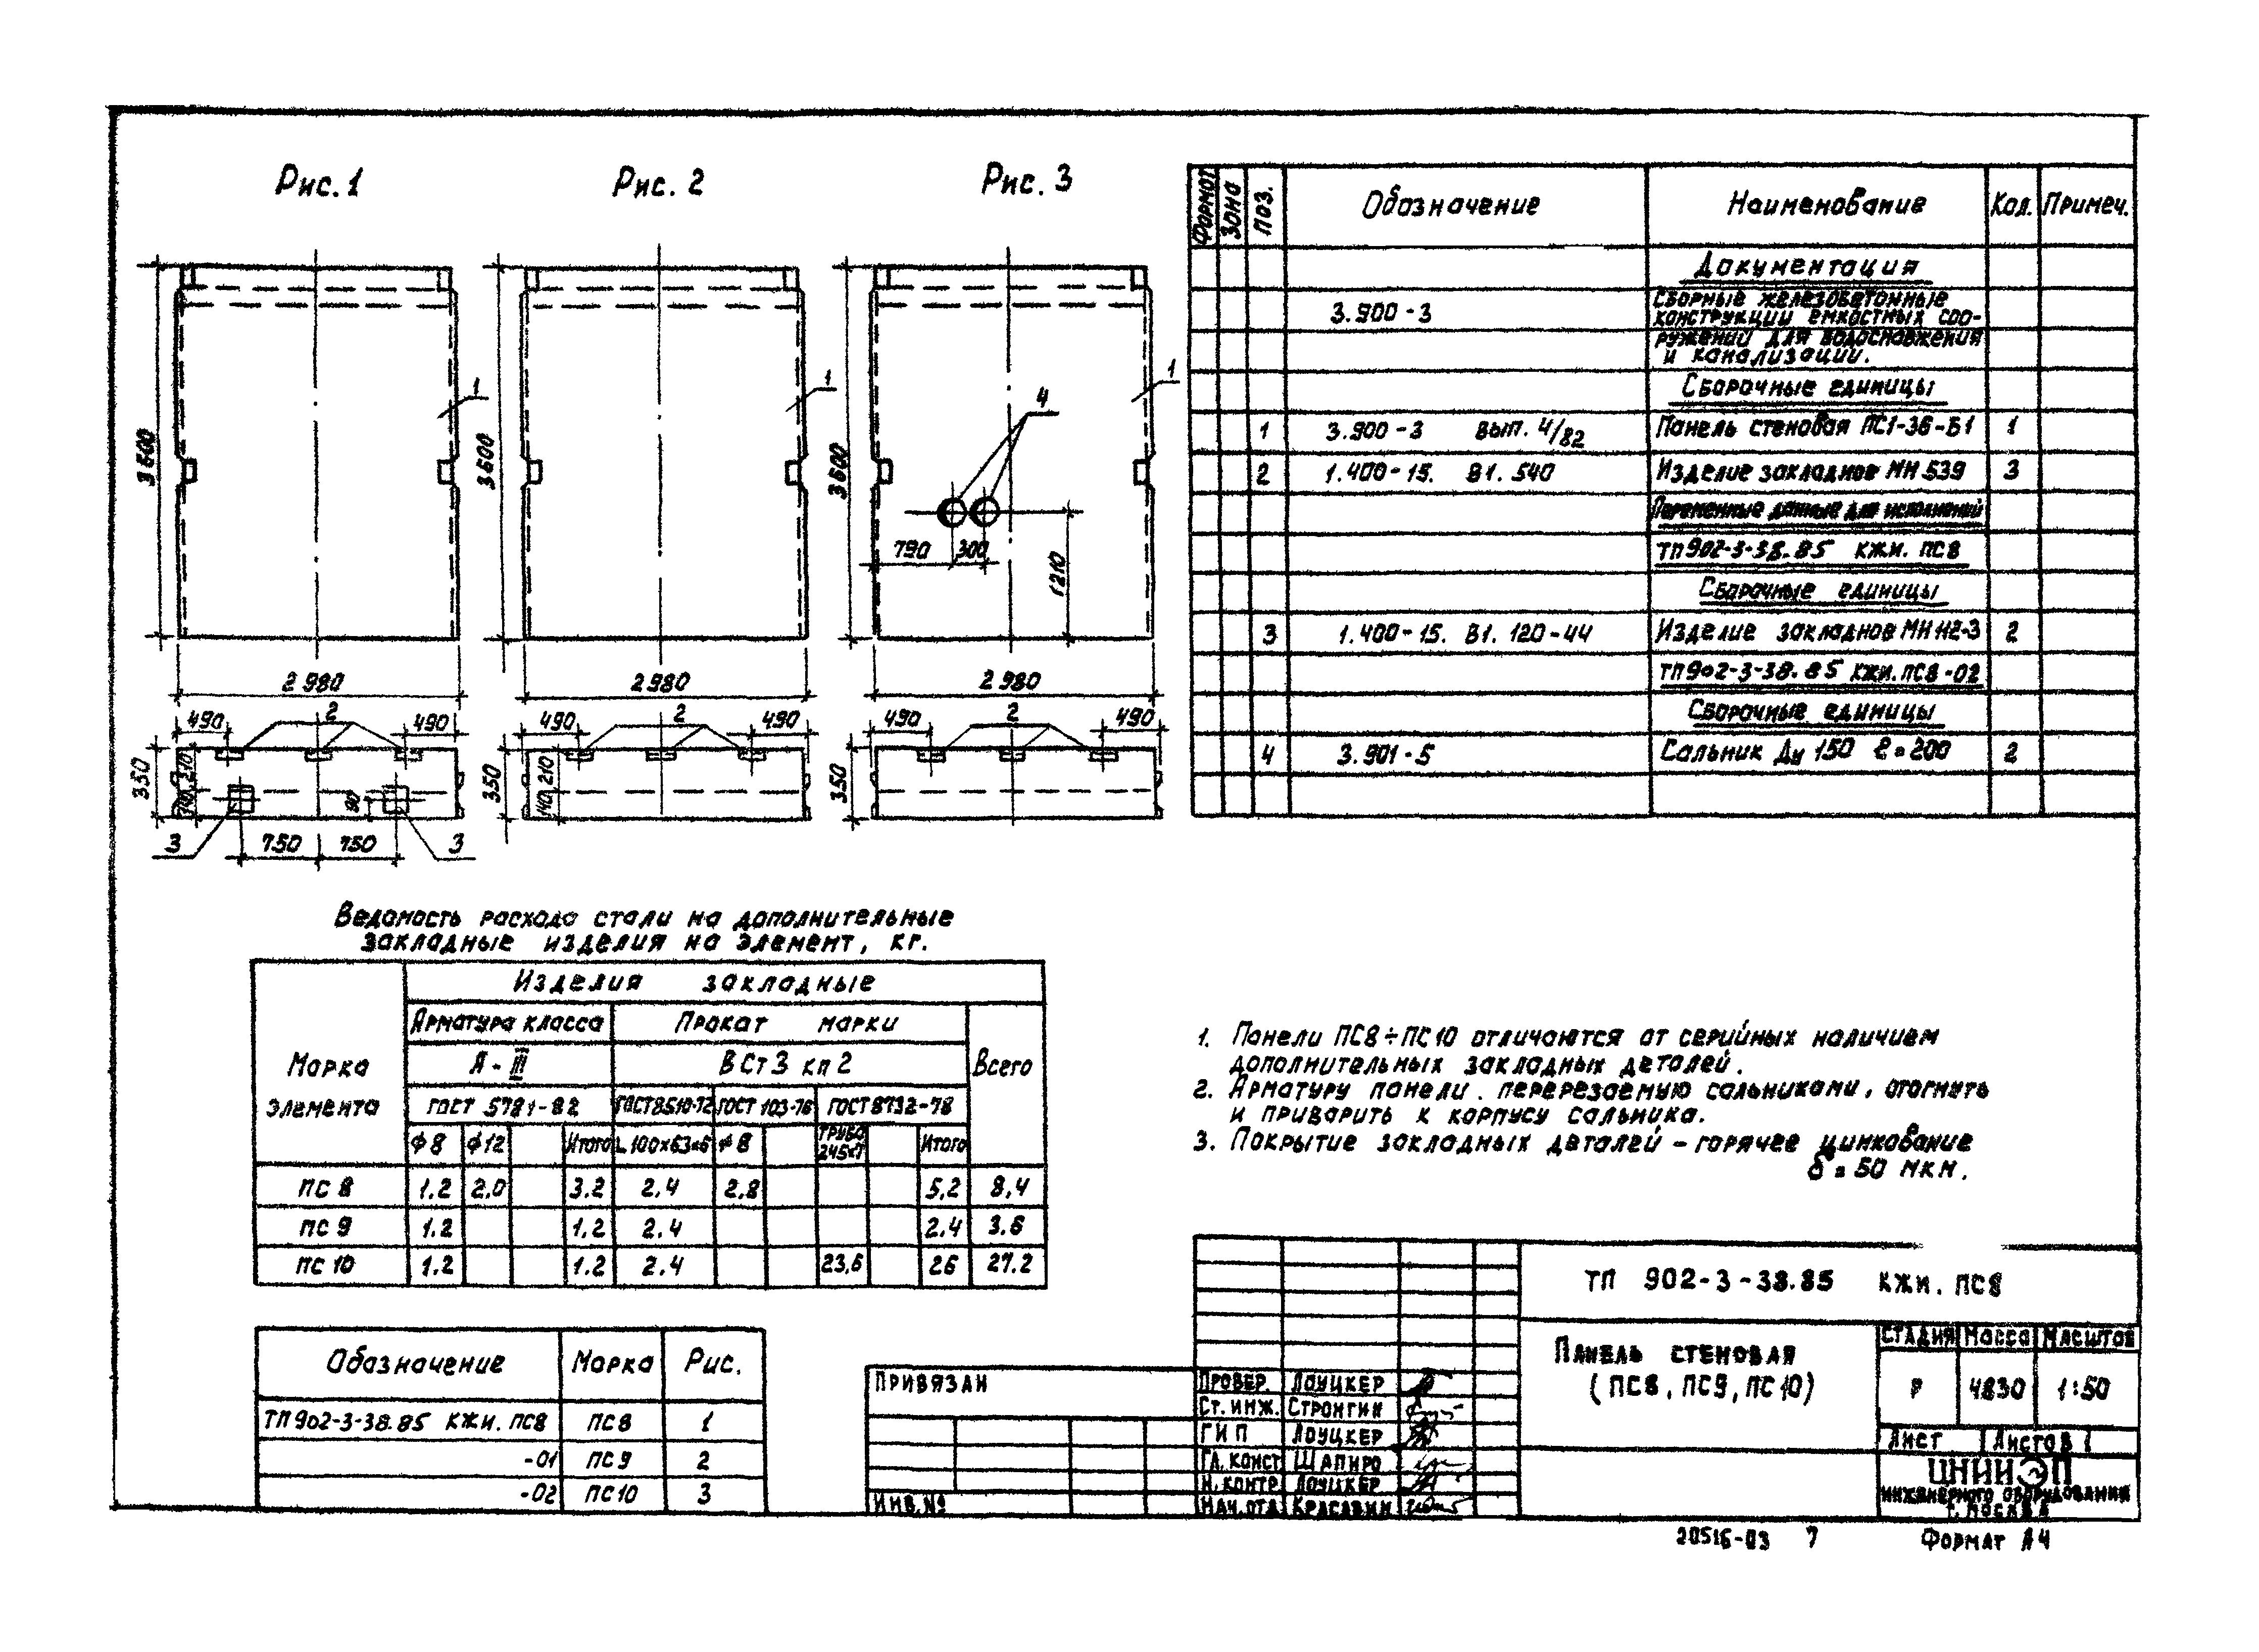 Рис. 1
Рис. 2
Рис. 3
3600
1
2980
3600
1
2980
3600
1
4
790
300
1210
2980
490
2
490
350
210
140
90
3
750
750
3
490
2
490
350
210
140
490
2
490
350
Формат
Зона
Поз.
Обозначение
Наименование
Кол.
Примеч.
Документация
3.900-3
Сборные железобетонные
конструкции емкостных соо-
ружений для водоснабжения
и канализации.
Сборочные единицы
1 3.900-3 вып. 4/82 Панель стеновая ПС1-36-Б1 1
2 1.400-15. В1. 540 Изделие закладное МН 539 3
Переменные данные для исполнений
ТП 902-3-38.85 КЖИ. ПС8
Сборочные единицы
3 1.400-15. В1. 120-44 Изделие закладное МН 112-3 2
ТП 902-3-38.85 КЖИ. ПС8-02
Сборочные единицы
4 3.901-5 Сальник Ду 150 ℓ=200 2
Ведомость расхода стали на дополнительные
закладные изделия на элемент, кг.
Марка
элемента
Изделия закладные
Арматура класса
Прокат марки
Всего
А-III
ВСт3 кп2
ГОСТ 5781-82
ГОСТ 8510-72
ГОСТ 103-76
ГОСТ 8732-78
ф8 ф12 Итого L100х63х6 ф8 Труба 245х7 Итого
ПС 8 1.2 2.0 3.2 2.4 2.8 5,2 8,4
ПС 9 1.2 1.2 2.4 2.4 3.6
ПС 10 1.2 1.2 2.4 23,6 26 27.2
1. Панели ПС8÷ПС10 отличаются от серийных наличием
дополнительных закладных деталей.
2. Арматуру панели, перерезаемую сальниками, отогнуть
и приварить к корпусу сальника.
3. Покрытие закладных деталей – горячее цинкование
δ = 50 мкм.
Обозначение Марка Рис.
ТП 902-3-38.85 КЖИ. ПС8 ПС8 1
-01 ПС9 2
-02 ПС10 3
Привязан
Инв. №
Провер. Лоуцкер
Ст. инж. Стронгин
ГИП Лоуцкер
Гл. конст. Шапиро
Н. контр. Лоуцкер
Нач. отд. Красавин
ТП 902-3-38.85 КЖИ. ПС8
Панель стеновая
(ПС8, ПС9, ПС10)
Стадия Масса Масштаб
Р 4830 1:50
Лист Листов 1
ЦНИИЭП
инженерного оборудования
г. Москва
20516-03 7
Формат А4